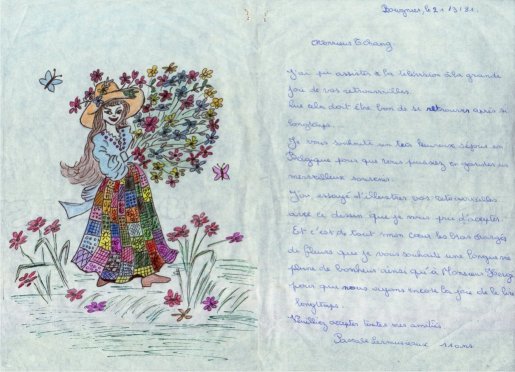 Bouignies, le 21/3/81.
Monsieur Tchang,
J'ai pu assister à la télévision à la grande
joie de vos retrouvailles.
Que cela doit être bon de se retrouver après si
longtemps.
Je vous souhaite un très heureux séjour en
Belgique pour que vous puissiez en garder un
merveilleux souvenir.
J'ai essayé d'illustrer vos retrouvailles
avec ce dessin que je vous prie d'accepter.
Et c'est de tout mon cœur les bras chargés
de fleurs que je vous souhaite une longue vie
pleine de bonheur ainsi qu'à Monsieur Hergé
pour que nous ayons encore la joie de le lire
longtemps.
Veuillez accepter toutes mes amitiés.
Pascale 11 ans